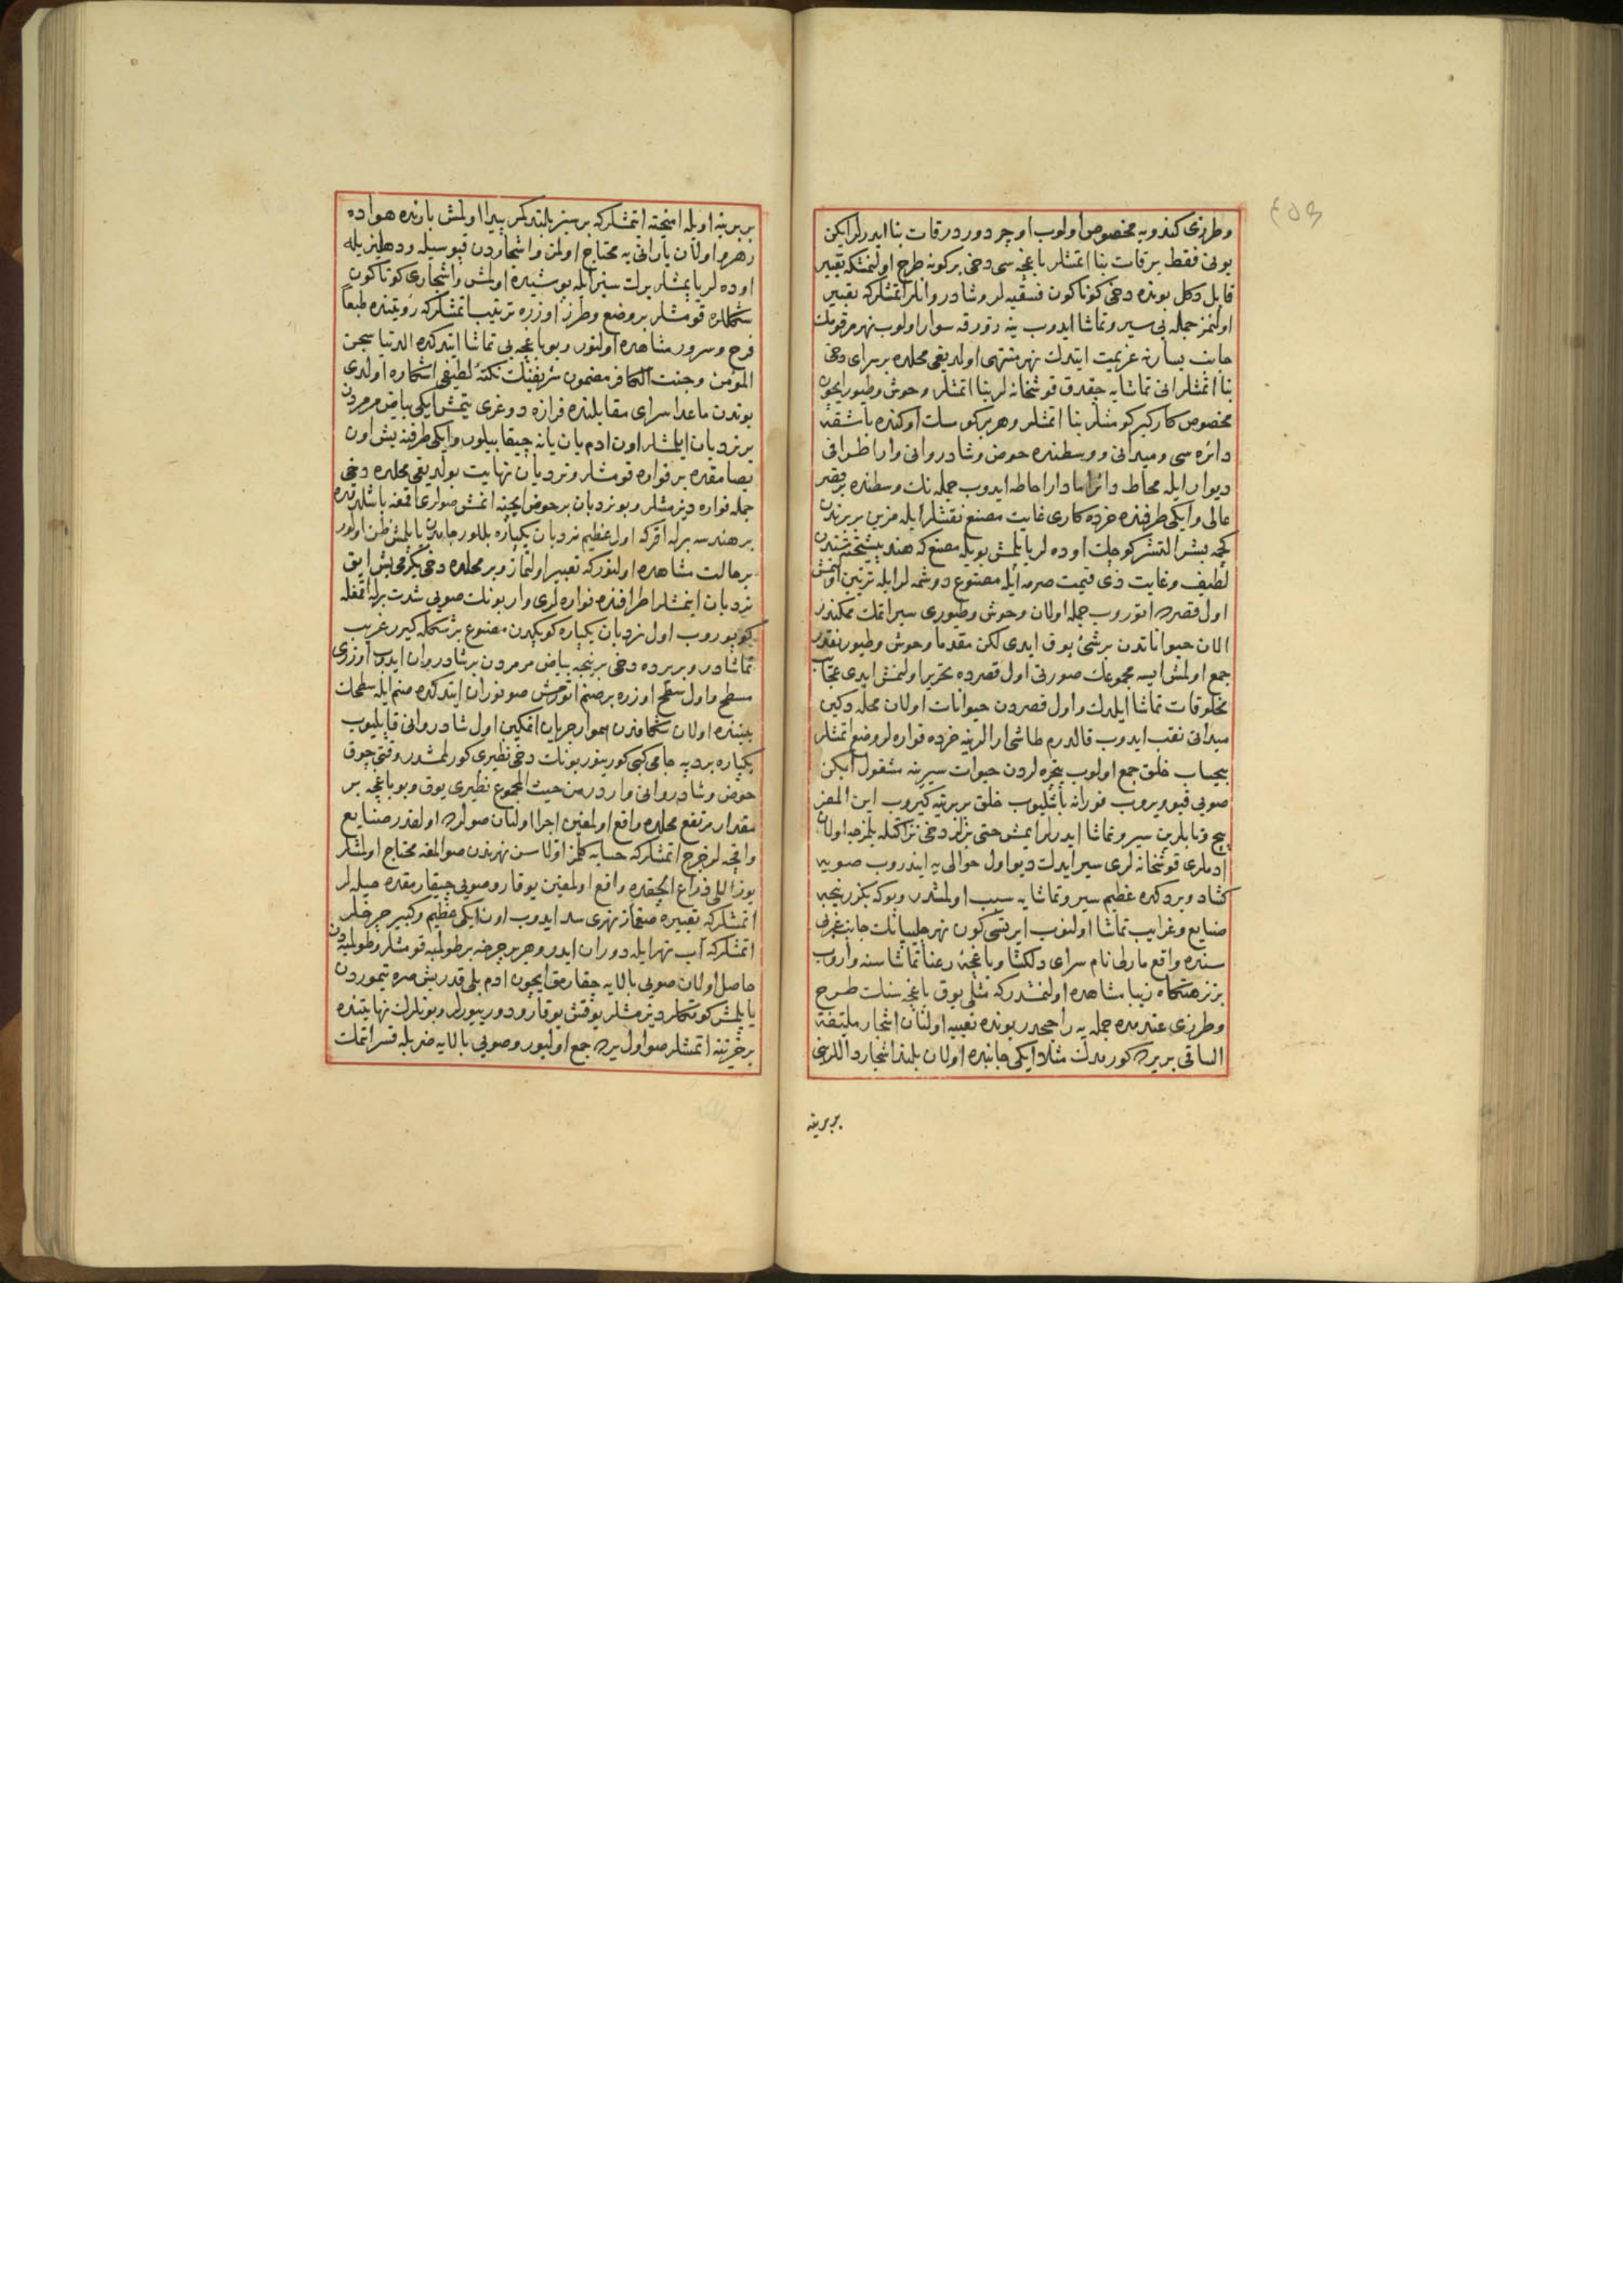 وطرزى كندويه مخصوص اولوب اوچر دوردر قات بنا ايدرلر ايكن
بونى فقط بر قات بنا اتمشلر باغچه سى دخى بركونه طرح اولنمشكه تعبير
قابل دكل بونده دخى كوناكون فسقيه لر وشادروانلر اتمشلركه تعبير
اولنمز جمله يى سير وتماشا ايدوب ينه زورقه سوار اولوب نهر مرقومك
جانب يسارنه عزيمت ايتدك نهر منتهى اولديغى محلده بر سراى دخى
بنا اتمشلر انى تماشايه چقدق قوشخانه لر بنا اتمشلر وحوش وطيور ايچون
مخصوص كاركير كومشلر بنا اتمشلر وهر بر كومسك اوكنده باشقه
دائره سى وميدانى ووسطنده حوض وشادروانى وار اطرافى
ديوار ايله محاط دائرا مادار احاطه ايدوب جمله نك وسطنده بر قصر
عالى وايكى طرفنده خرده كارى غايت مصنع نقشلر ايله مزين بربرندن
كچمه بشر التشر كوچك اوده لر ياپلمش بويله مصنع كه هند پيشتخته سندن
لطيف وغايت ذى قيمت صرمه ايله مصنوع دوشمه لر ايله تزيين اولنمش
اول قصرده اتوروب جمله اولان وحوش وطيورى سير اتمك ممكندر
الان حيواناتدن بر شئ يوق ايدى لكن مقدما وحوش وطيور نقدر
جمع اولمش ايسه مجموعنك صورتى اول قصرده تحرير اولنمش ايدى عجايب
مخلوقات تماشا ايلدك واول قصردن حيوانات اولان محله دكين
ميدانى نقب ايدوب قالدرم طاشى ارالرينه خرده فواره لر وضع اتمشلر
بيحساب خلق جمع اولوب پنجره لردن حيوانات سيرينه مشغول ايكن
صويى قيويروب فورانه باشليوب خلق بربرينه كيروب اين المفر
ادملرى قوشخانه لرى سير ايدك ديو اول حوالى يه ايندروب صويه
كشاد ويردكده عظيم سير وتماشايه سبب اولمشدر وبوكه بكزر نيجه
صنايع وغرايب تماشا اولنوب ايرتسى كون نهر جانب غربى
سنده واقع مارلى نام سراى دلكشا وباغچه رعنا تماشاسنه واروب
بر نزهتكاه زيبا مشاهده اولنمشدركه مثلى يوق باغچه سنك طرح
وطرزى عندمده جمله يه راجحدر بونده تعبيه اولنان اشجار ملتفة
الساقى بر يرده كورمدك مثلا ايكى جانبده اولان بلند اشجار دالارينى
بربرينه
بربرينه اويله اميخته اتمشلركه بر سبز پيدا اولمش يازنده هواده
رهرو اولان يارانى يه محتاج اولمز واشجاردن قپوسيله ودهليزيله
اوده لر ياپمشلر برك سبز ايله پوشيده اولمش واشجارى كوناكون
شكلده قومشلر بر وضع وطرز اوزره ترتيب اتمشلركه رؤيتنده طبعا
فرح وسرور مشاهده اولنور وبو باغچه يى تماشا ايتدكده الدنيا سجن
المؤمن وجنت الكافر مضمون شريفنك نكته لطيفى اشكاره اولدى
بوندن ماعدا سراى مقابلنده فرازه دوغرى يتمش ايكى بياض مرمردن
بر نردبان ايلمشلر اون ادم يان يانه چيقابيلور وايكى طرفنه بش اون
بصامقده بر فواره قومشلر ونردبان نهايت بولديغى محلده دخى
جمله فواره ديزمشلر وبو نردبان بر حوض ايچنه انمش صولرى اقمغه باشلدقده
بر هندسه برله اقركه اول عظيم نردبان يكپاره بللور جامدن ياپلمش ظن اولنور
بر حالت مشاهده اولنور كه تعبير اولنماز وبر محلده دخى يكرمى بش ايق
نردبان ايتمشلر اطرافنده فواره لرى وار بونك صويى شدت برله اقمغله
كوپوروب اول نردبان يكپاره كوپكدن مصنوع بر شكله كيرر غريب
تماشادر وبر يرده دخى بر نيجه بياض مرمردن بر شادروان ايدوب اوزرى
مسطح واول سطح اوزره بر صنم اتورمش صو فوران ايتدكده صنم ايله سطحك
بيننده اولان شكافدن هموار جريان اتمكين اول شادروانى قاپليوب
يكپاره بر ديبه جامى كبى كورينور بونك دخى نظيرى كورلمشدر وقتى چوق
حوض وشادروانى واردر من حيث المجموع نظيرى يوق وبو باغچه بر
مقدار مرتفع محلده واقع اولمغين اجرا اولنان صولرده اولقدر صنايع
واقچه لر خرج اتمشلركه حسابه كلمز اولا سن نهرندن صو المغه محتاج اولمشلر
يوز اللى ذراع الچقده واقع اولمغين يوقارو صويى چيقارمقده حيله لر
اتمشلركه تعبيره صغماز نهرى سد ايدوب اون ايكى عظيم وكبير چرخلر
اتمشلركه آب نهر ايله دوران ايدر وهر بر چرخه بر طولمبه قومشلر وطولمبه دن
حاصل اولان صويى بالايه چقارمق ايچون ادم بلى قدر يش مره تيموردن
ياپلمش كونكلر ديزمشلر يوقش يوقارو دورييورلر وبونلرك نهايتنده
بر خزينه اتمشلر صو اول يرده جمع اوليور وصويى بالايه ضربله قسر اتمك